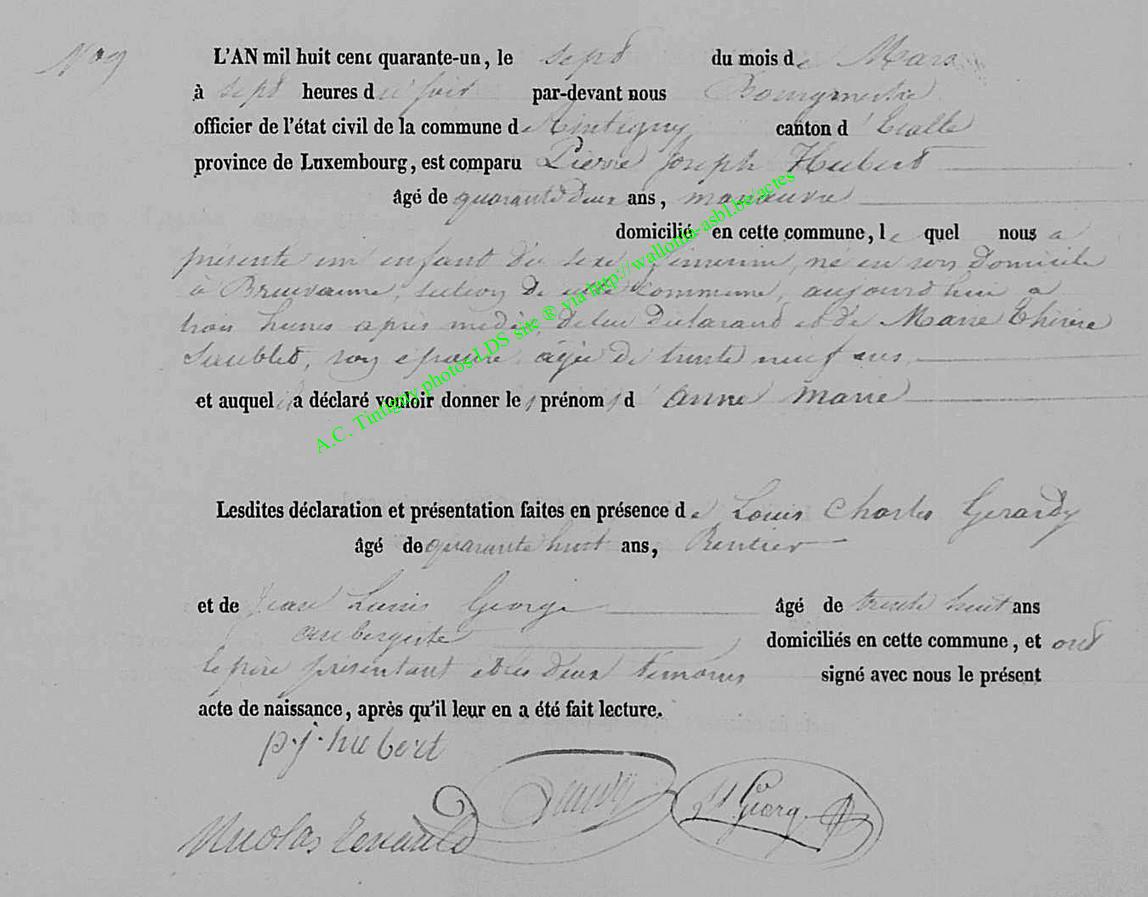 No 9 L'AN mil huit cent quarante-un, le sept du mois de Mars
à sept heures du soir par-devant nous Bourgmestre
officier de l'état civil de la commune de Tintigny, canton d'Etalle
province de Luxembourg, est comparu Pierre Joseph Hubert
âgé de quarante deux ans, manœuvre
domicilié en cette commune, le quel nous a
présenté un enfant du sexe féminin, né en son domicile
à Breuvanne, section de cette commune, aujourd'hui à
trois heures après midi, de lui déclarant et de Marie Thérèse
son épouse, âgée de trente neuf ans
et auquel il a déclaré vouloir donner le prénom d'anne marie
Lesdites déclaration et présentation faites en présence de Louis Charles Gerardy
âgé de quarante huit ans, Rentier
et de Jean Louis George âgé de trente huit ans
aubergiste domiciliés en cette commune, et ont
le père présentant et les deux témoins signé avec nous le présent
acte de naissance, après qu'il leur en a été fait lecture.
p.j.hubert
Gerardy
George
Nicolas Renauld
A.C. Tintigny photos LDS site ® via http://wallonia-asbl.be/actes